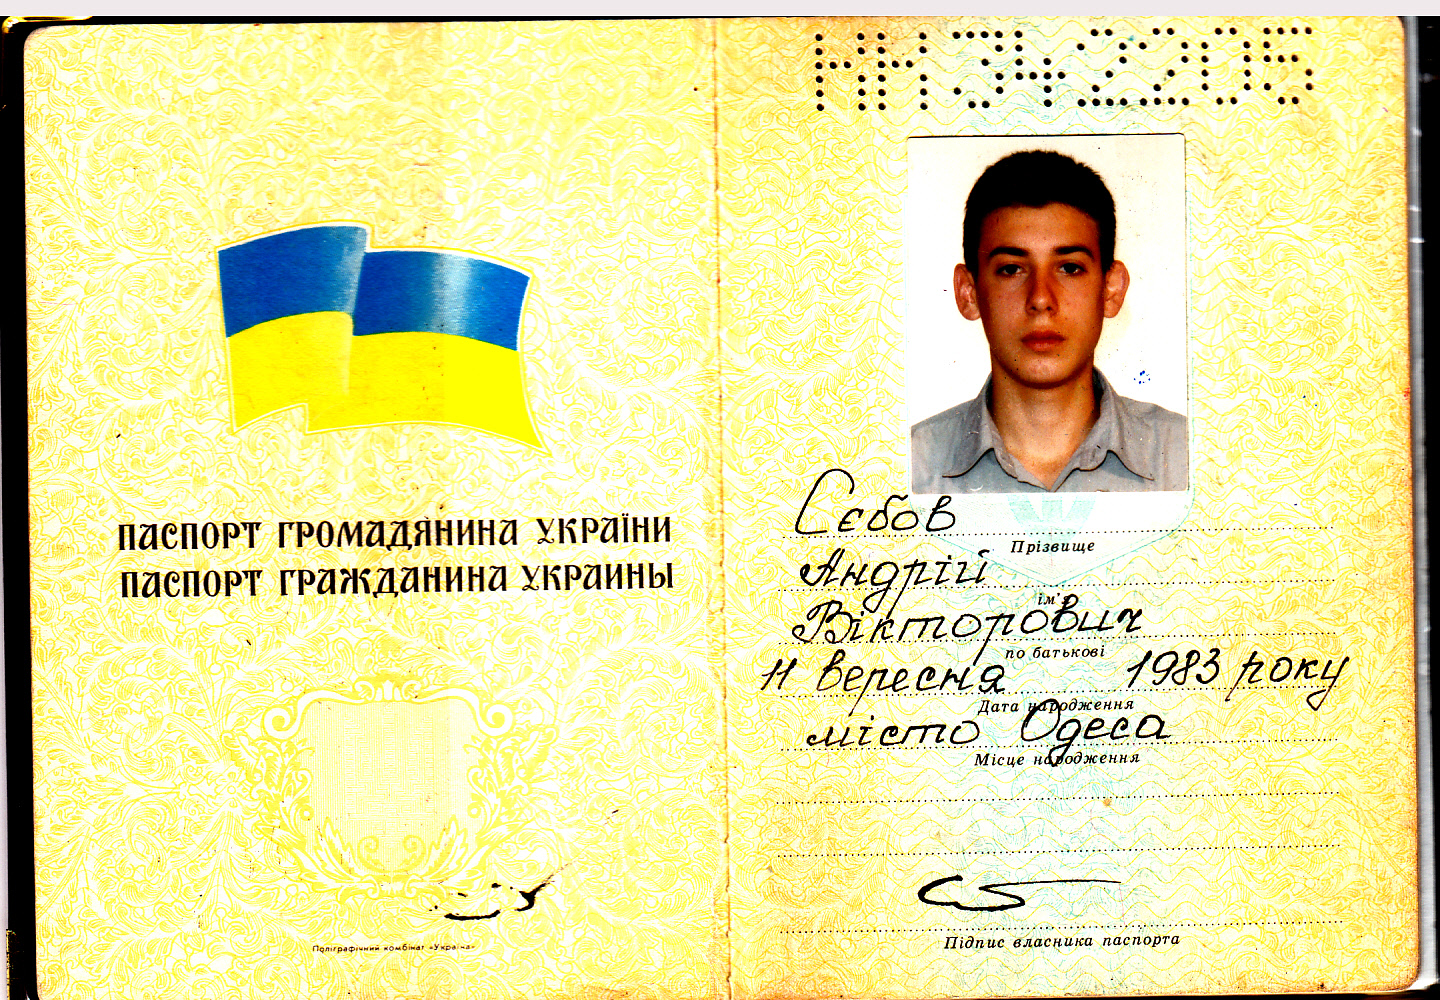 НН342205
ПАСПОРТ ГРОМАДЯНИНА УКРАЇНИ
ПАСПОРТ ГРАЖДАНИНА УКРАИНЫ
Поліграфічний комбінат «Україна»
Сєбов
Прізвище
Андрій
ім'я
Вікторович
по батькові
11 вересня 1983 року
Дата народження
місто Одеса
Місце народження
Підпис власника паспорта